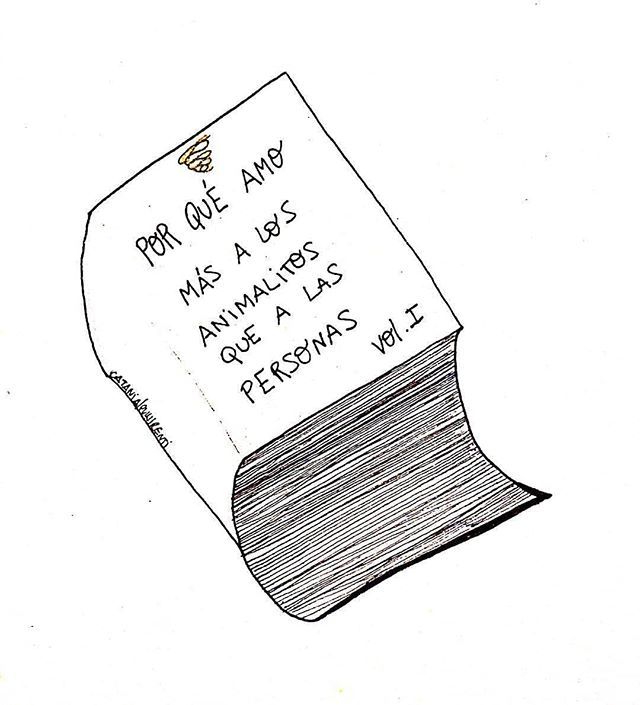 POR QUÉ AMO
MÁS A LOS
ANIMALITOS
QUE A LAS
PERSONAS
VOL. I